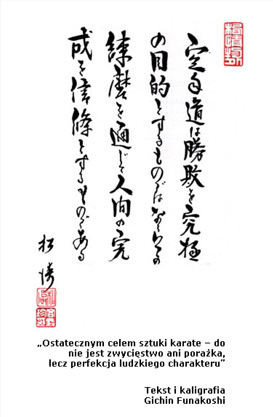 空手道は勝敗を究極
の目的とするものではなく
練磨を通じて人間の完
成を信條とするものである
松濤
„Ostatecznym celem sztuki karate – do
nie jest zwycięstwo ani porażka,
lecz perfekcja ludzkiego charakteru”
Tekst i kaligrafia
Gichin Funakoshi